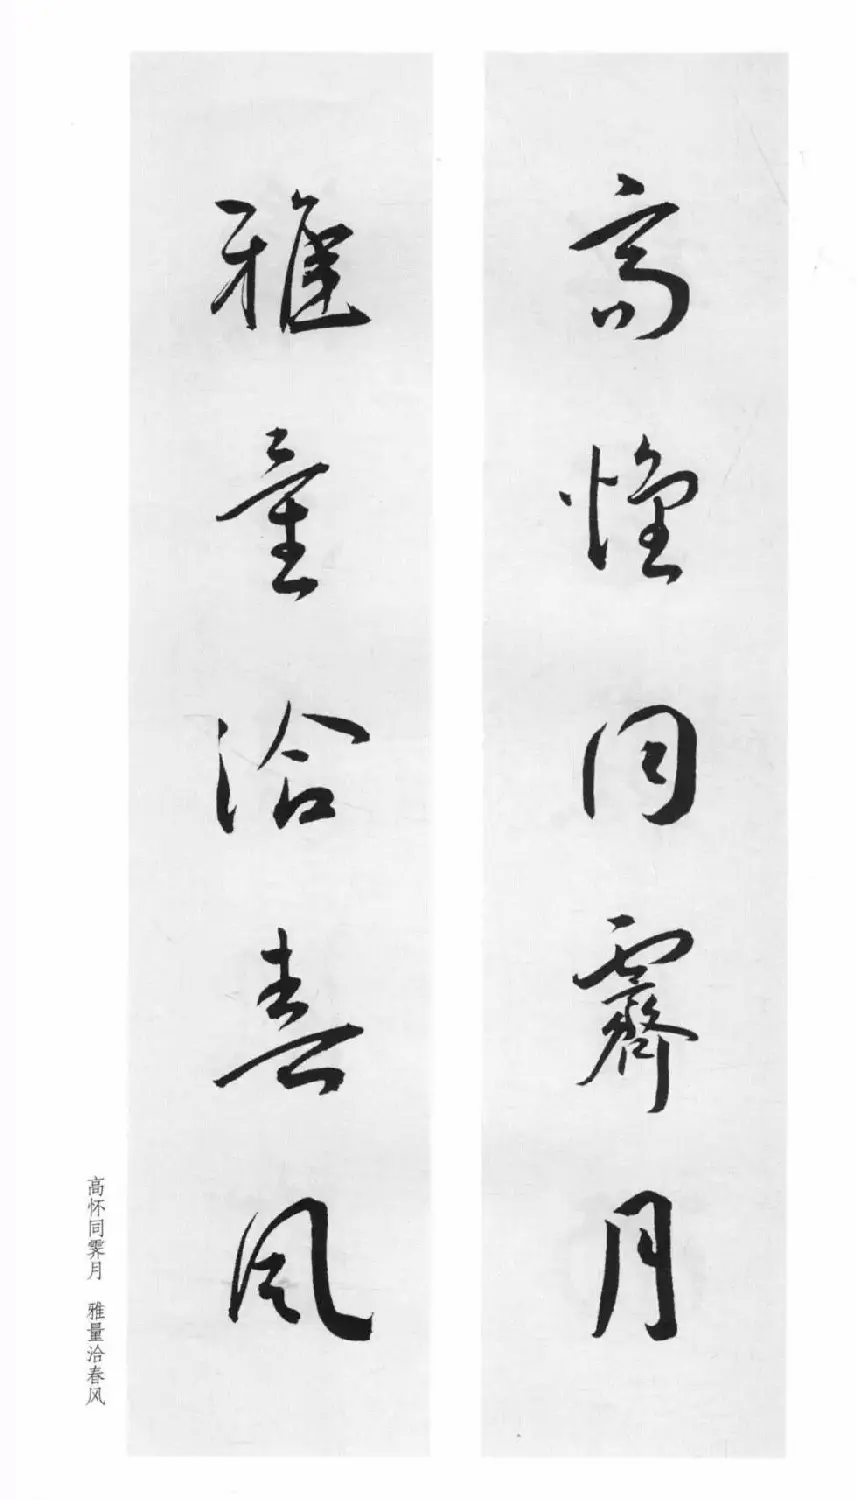 高懷同霽月
雅量洽春風
高怀同霁月　雅量洽春风